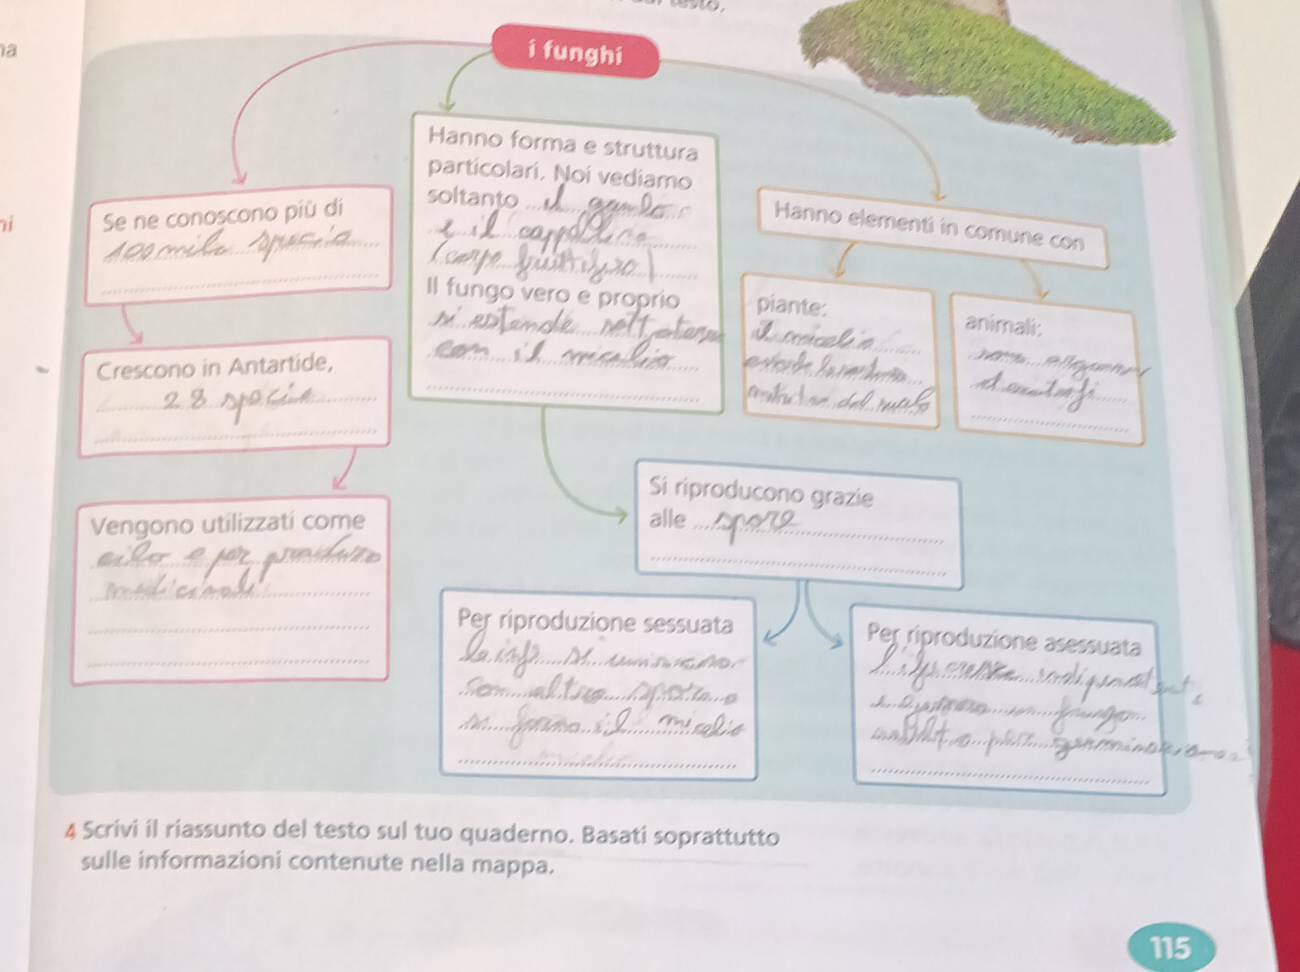 i funghi
Se ne conoscono più di
100 mila specie
Crescono in Antartide,
28 specie
Vengono utilizzati come
cibo e per produrre
medicinali
Hanno forma e struttura
particolari. Noi vediamo
soltanto il gambo
e il cappellino
(corpo fruttifero)
Il fungo vero e proprio
si estende sottoterra
con il micelio
Hanno elementi in comune con
piante:
il micelio
animali:
sono
Si riproducono grazie
alle spore
Per riproduzione sessuata
le ife si uniscono
con altre spore e
si forma il micelio
Per riproduzione asessuata
fungo
4 Scrivi il riassunto del testo sul tuo quaderno. Basati soprattutto
sulle informazioni contenute nella mappa.
115